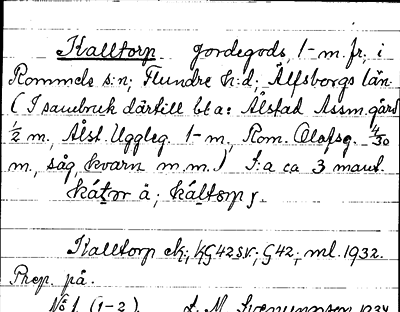 Kalltorp jordegods, 1-m. fr., i
Rommele s:n; Flundre h:d; Älfsborgs län
(I sambruk därtill bl a: Ålstad Assm.gård
½ m., Ålst. Uggleg. 1-m., Rom. Olofsg. 4/30
m., såg, kvarn m.m.) S:a ca 3 mant.
Kalltorp ek; kG42sv; G42; ml. 1932.
Prep. på.
No 1. (1-2).